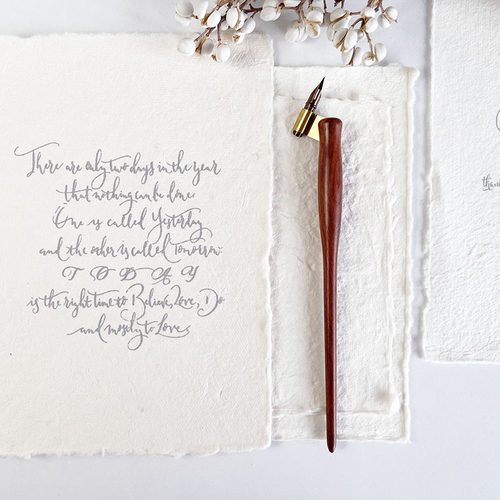 There are only two days in the year
that nothing can be done.
One is called Yesterday
and the other is called Tomorrow.
TODAY
is the right time to Believe, Love, Do
and mostly to Love.
thank